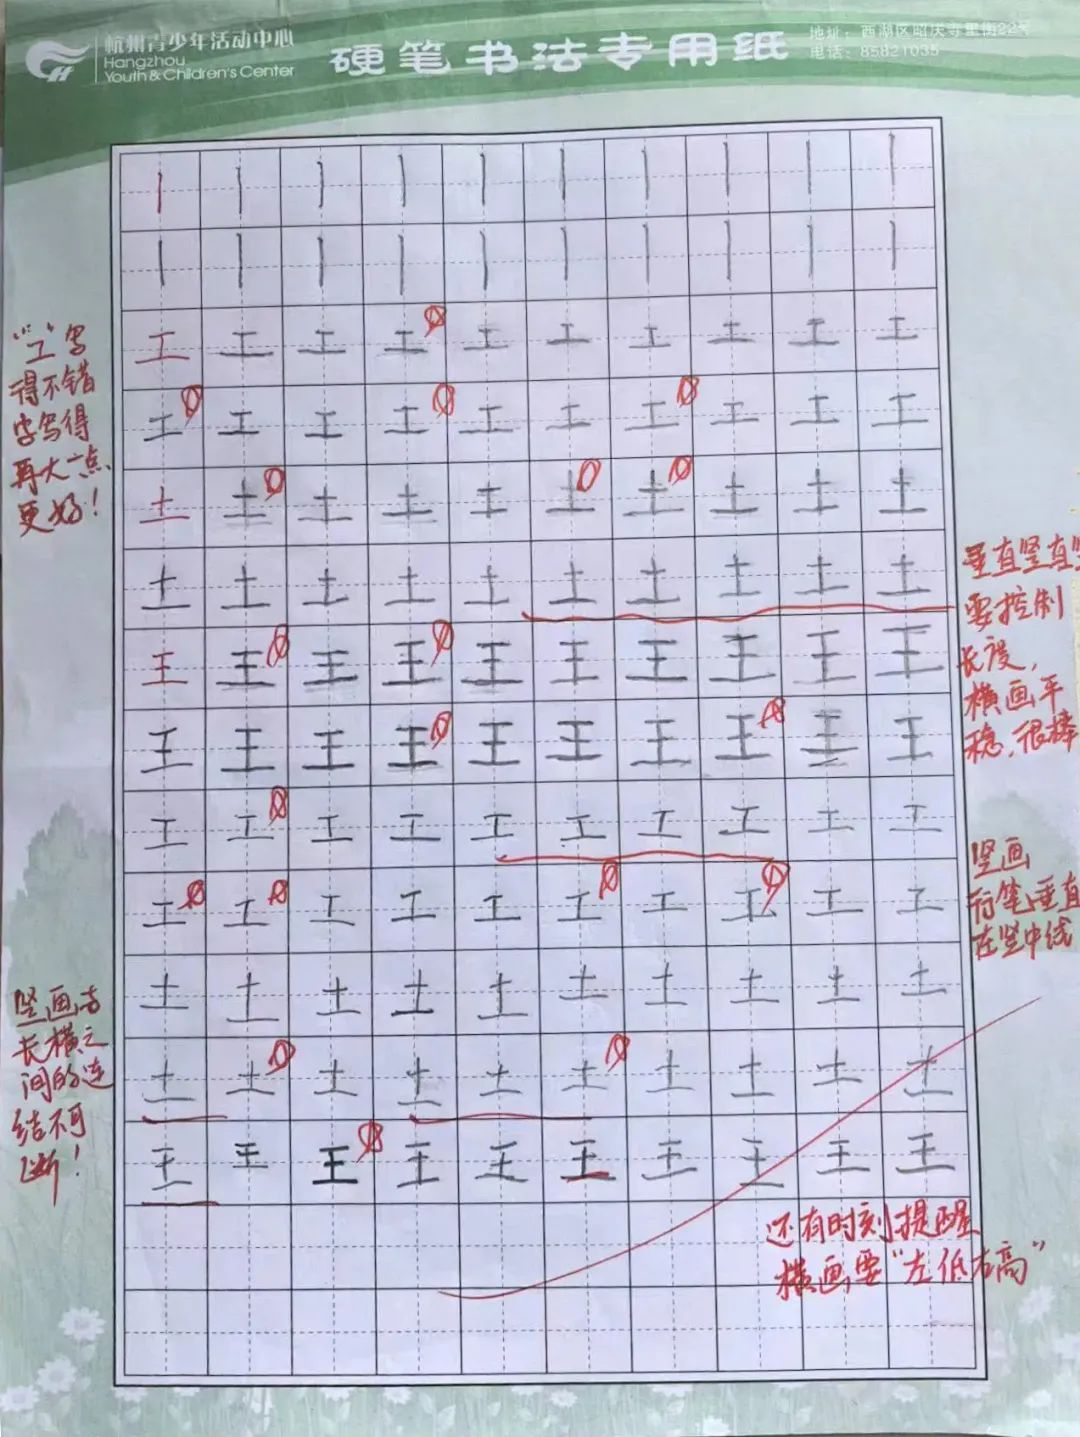 杭州青少年活动中心
Hangzhou
Youth & Children's Center
硬笔书法专用纸
地址：西湖区昭庆寺里街22号
电话：85821035
丨 丨 丨 丨 丨 丨 丨 丨 丨 丨
丨 丨 丨 丨 丨 丨 丨 丨 丨 丨
工 工 工 工 工 工 工 工 工 工
工 工 工 工 工 工 工 工 工 工
土 土 土 土 土 土 土 土 土 土
土 土 土 土 土 土 土 土 土 土
王 王 王 王 王 王 王 王 王 王
王 王 王 王 王 王 王 王 王 王
工 工 工 工 工 工 工 工 工 工
工 工 工 工 工 工 工 工 工 工
土 土 土 土 土 土 土 土 土 土
土 土 土 土 土 土 土 土 土 土
王 王 王 王 王 王 王 王 王 王
"工"写
得不错
字写得
再大一点
更好！
垂直竖直
要控制
长度，
横画平
稳，很棒
竖画
行笔垂直
在竖中线
竖画与
长横之
间的连
结不可
断！
还有时刻提醒
横画要"左低右高"